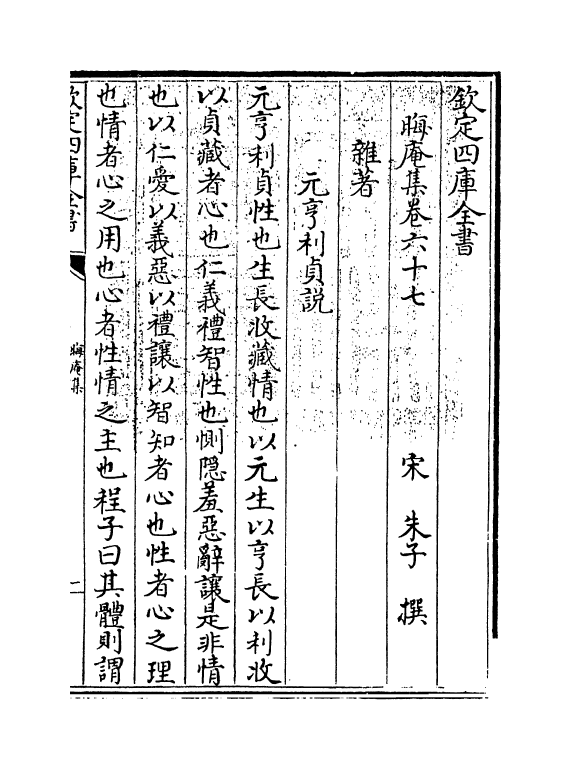 欽定四庫全書
晦庵集卷六十七　宋　朱子　撰
雜著
元亨利貞説
元亨利貞性也生長收藏情也以元生以亨長以利收
以貞藏者心也仁義禮智性也惻隠羞惡辭讓是非情
也以仁愛以義惡以禮讓以智知者心也性者心之理
也情者心之用也心者性情之主也程子曰其體則謂
欽定四庫全書
晦庵集